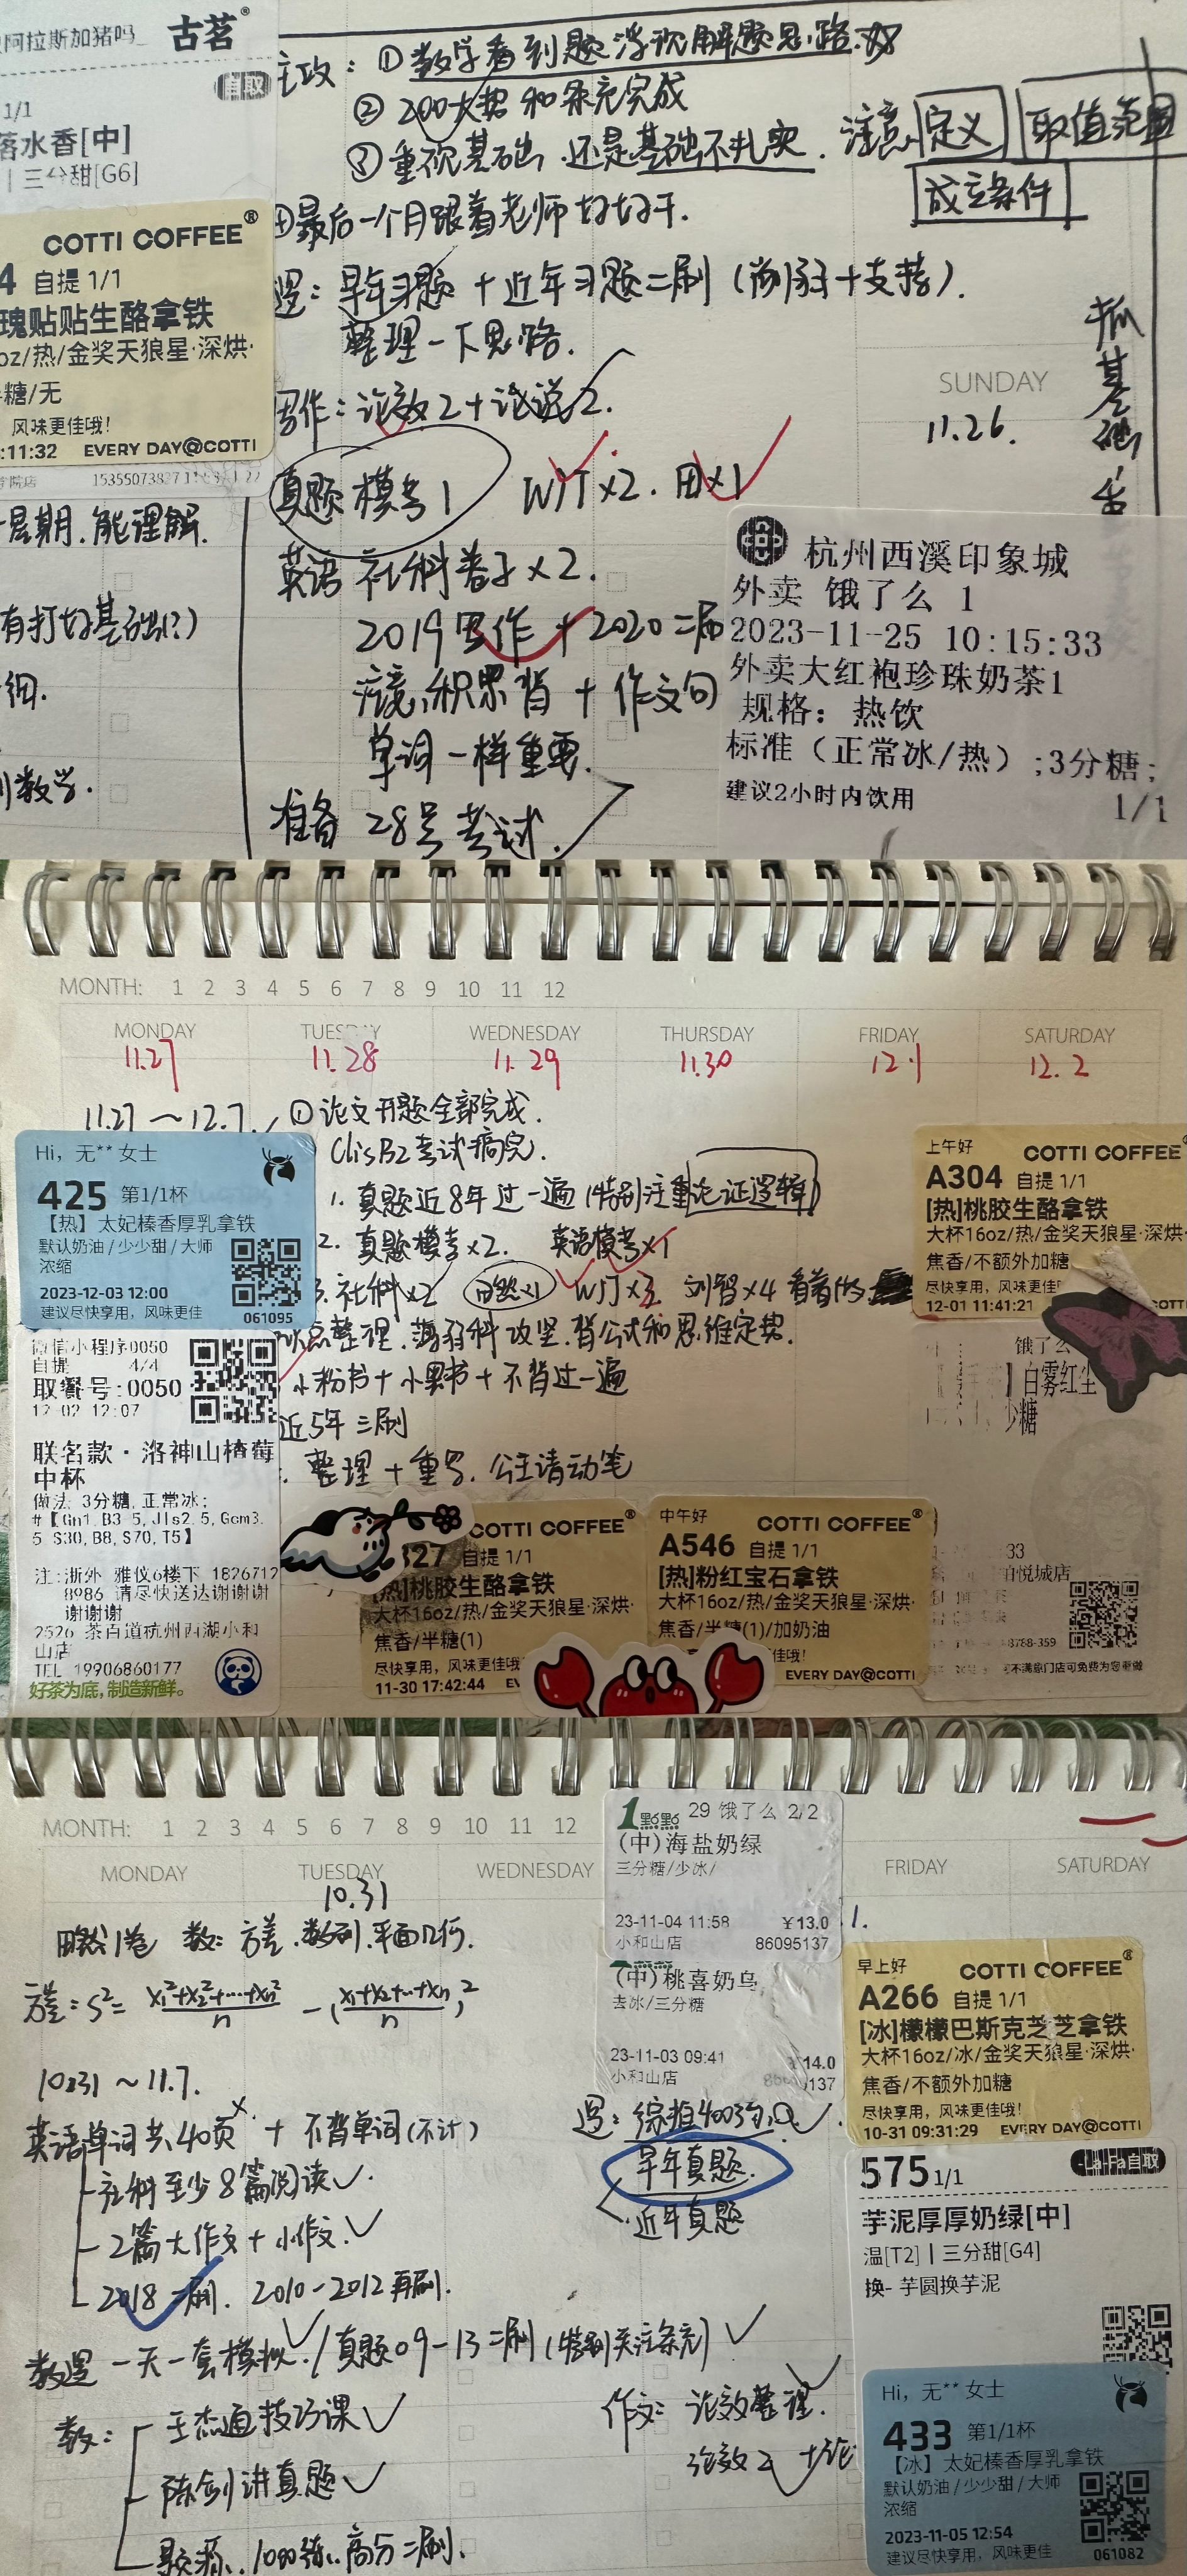 阿拉斯加猪吗_ 古茗
自取
1/1
落水香[中]
| 三分甜[G6]
主攻：① 数学看到题浮现解题思路.
② 200大招和条充完成
③ 重视基础 还是基础不扎实. 注意 定义 取值范围
成立条件
④最后一个月跟着老师好好干.
COTTI COFFEE
4 自提 1/1
瑰贴贴生酪拿铁
oz/热/金奖天狼星·深烘·
糖/无
风味更佳哦!
:11:32 EVERY DAY@COTTI
逻: 早年习题 + 近年习题二刷 (削弱+支持).
整理一下思路.
写作: 论效2+论说2.
SUNDAY
11.26.
抓基础
真题模考1 WJT×2. 田×1
能理解.
英语 社科卷子×2.
有打好基础(?)
2019写作 + 2020二刷
积累背 + 作文句
单词一样重要.
数学.
准备 28号考试.
杭州西溪印象城
外卖 饿了么 1
2023-11-25 10:15:33
外卖大红袍珍珠奶茶1
规格: 热饮
标准 (正常冰/热) ;3分糖;
建议2小时内饮用
1/1
MONTH: 1 2 3 4 5 6 7 8 9 10 11 12
MONDAY TUESDAY WEDNESDAY THURSDAY FRIDAY SATURDAY
11.27 11.28 11.29 11.30 12.1 12.2
11.27～12.7. ①论文开题全部完成.
考试搞完.
1. 真题近8年过一遍 (特别注重论证逻辑)
2. 真题模考×2. 英语模考×1
3. 社科×2 田然×1 WJT×3 刘智×4 看着做
整理. 薄弱科攻坚. 背公式和思维定势.
小粉书+小黑书+不背过一遍
近5年三刷
整理+重写. 公主请动笔
Hi，无**女士
425 第1/1杯
【热】太妃榛香厚乳拿铁
默认奶油/少少甜/大师
浓缩
2023-12-03 12:00
建议尽快享用，风味更佳 061095
微信小程序0050
自提 4/4
取餐号:0050
12-02 12:07
联名款·洛神山楂莓
中杯
做法 3分糖,正常冰;
#【Gn1,B3-5,J1s2.5,Gcm3.
5 S30,B8,S70,T5】
注:浙外 雅仪6楼下 1826712
8986 请尽快送达谢谢谢
谢谢谢
2526 茶百道杭州西湖小和
山店
TEL 19906860177
好茶为底,制造新鲜。
上午好 COTTI COFFEE
A304 自提 1/1
[热]桃胶生酪拿铁
大杯16oz/热/金奖天狼星·深烘·
焦香/不额外加糖
尽快享用，风味更佳
12-01 11:41:21
饿了么
】白雾红尘
少糖
33
悦城店
8788-359
不满意门店可免费为您重做
COTTI COFFEE
327 自提 1/1
[热]桃胶生酪拿铁
大杯16oz/热/金奖天狼星·深烘·
焦香/半糖(1)
尽快享用，风味更佳哦
11-30 17:42:44
中午好 COTTI COFFEE
A546 自提 1/1
[热]粉红宝石拿铁
大杯16oz/热/金奖天狼星·深烘·
焦香/半糖(1)/加奶油
佳哦!
EVERY DAY@COTTI
MONTH: 1 2 3 4 5 6 7 8 9 10 11 12
MONDAY TUESDAY WEDNESDAY FRIDAY SATURDAY
10.31
田然1卷 数: 方差.数列.平面几何.
方差: S²= (x₁²+x₂²+…+xn²)/n - ((x₁+x₂+…+xn)/n)²
10.31～11.7.
英语单词共40页 + 不背单词(不计)
社科至少8篇阅读
2篇大作文+小作文.
2018二刷. 2010-2012再刷.
数逻 一天一套模拟/真题09-13二刷(特别关注条充)
数: 王杰通技巧课
陈剑讲真题
1000练.高分二刷.
逻: 综推400分
早年真题
近年真题
作文: 论效整理.
论效2 +论
1點點 29 饿了么 2/2
(中)海盐奶绿
三分糖/少冰/
23-11-04 11:58 ￥13.0
小和山店 86095137
(中)桃喜奶乌
去冰/三分糖
23-11-03 09:41 ￥14.0
小和山店 137
早上好 COTTI COFFEE
A266 自提 1/1
[冰]檬檬巴斯克芝芝拿铁
大杯16oz/冰/金奖天狼星·深烘·
焦香/不额外加糖
尽快享用，风味更佳哦!
10-31 09:31:29 EVERY DAY@COTTI
575 1/1 -La-Fa自取
芋泥厚厚奶绿[中]
温[T2] | 三分甜[G4]
换- 芋圆换芋泥
Hi，无**女士
433 第1/1杯
【冰】太妃榛香厚乳拿铁
默认奶油/少少甜/大师
浓缩
2023-11-05 12:54
建议尽快享用，风味更佳 061082